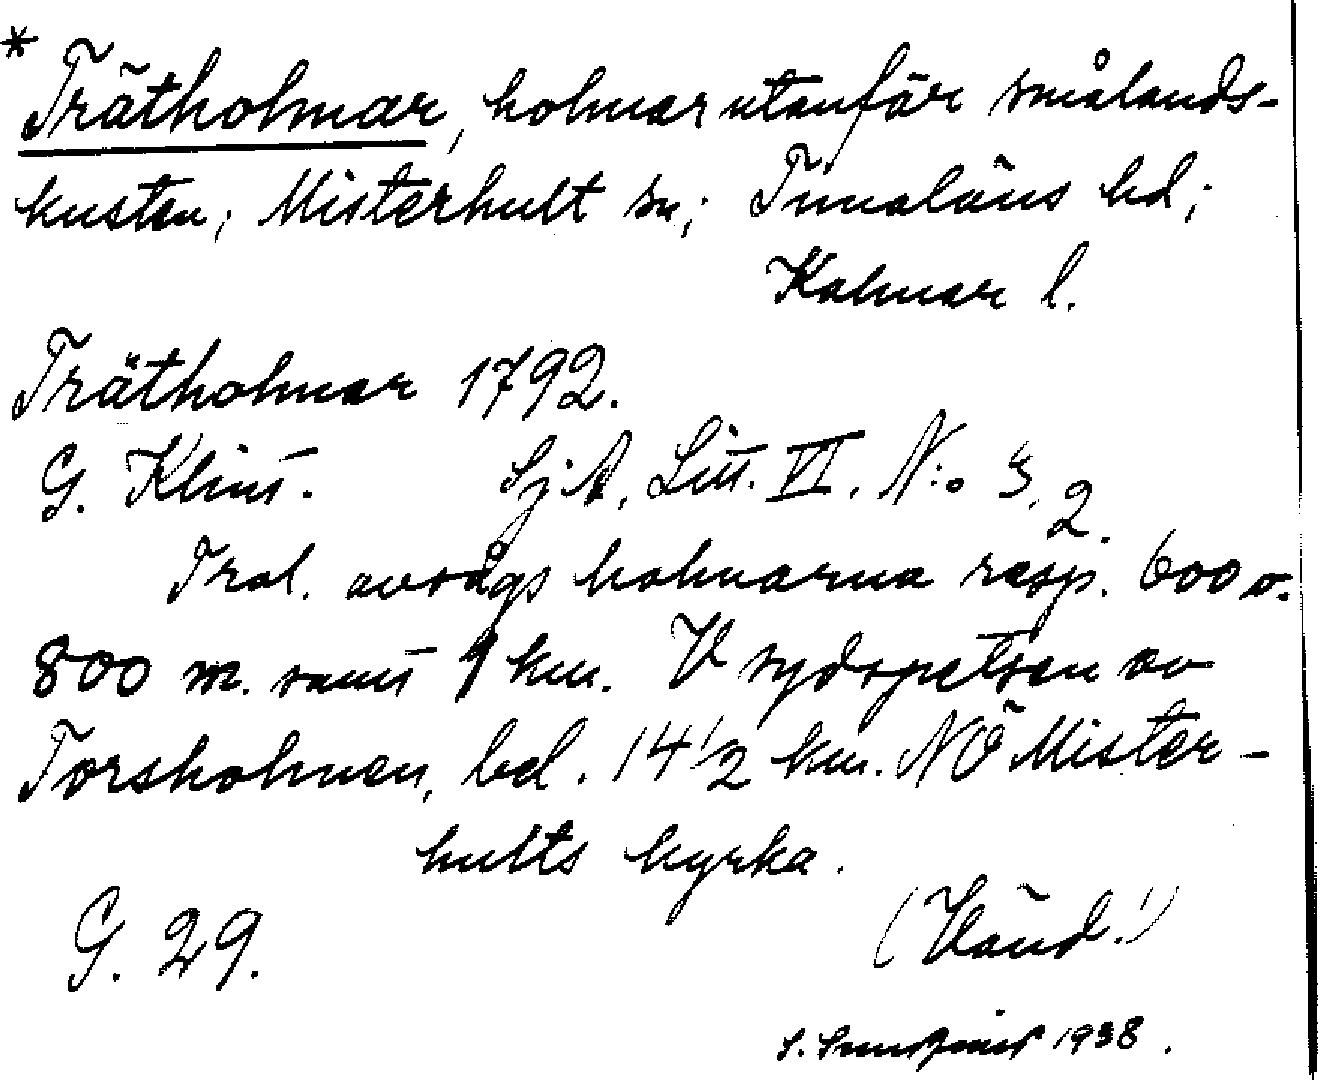 * Trätholmar, holmar utanför smålands-
kusten; Misterhult sn; Tunaläns hd;
Kalmar l.
Trätholmar 1792.
G. Klint. Sj A, Litt. VI, N:o 3, 2.
Trol. avsågs holmarna resp. 600 o.
800 m. samt 1 km. V sydspetsen av
Torsholmen, bel. 14 1/2 km. NÖ Mister-
hults kyrka.
G. 29. (Vänd!)
1938.